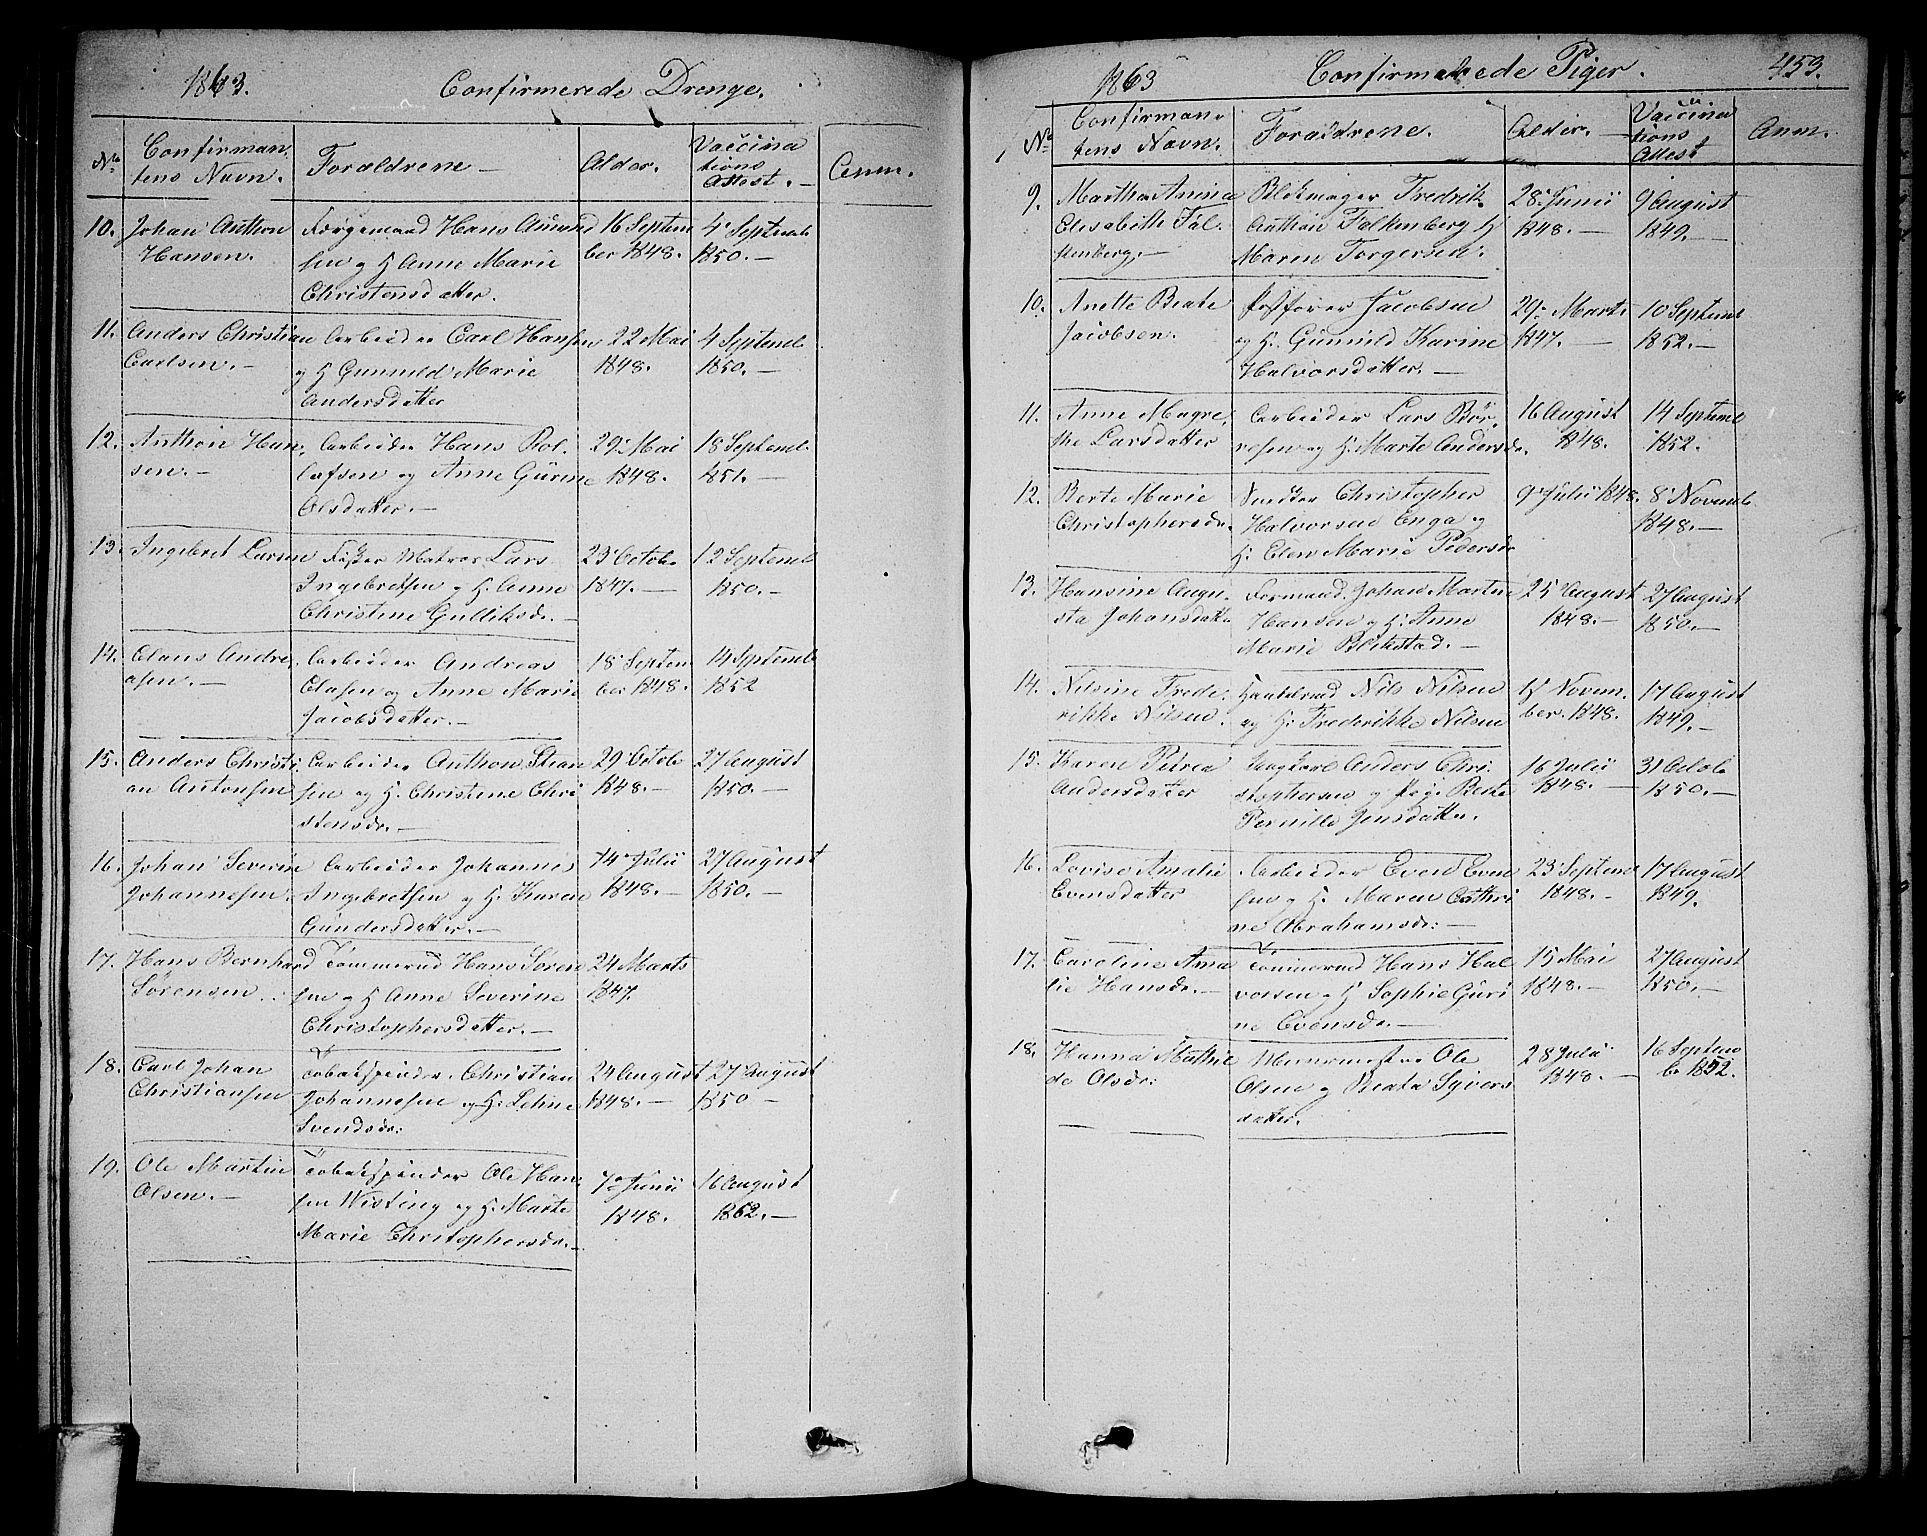 1863.
Confirmerede Drenge.
No
Confirman,
tens Navn.
Forældrene
Alder.
Vaccina
tions
Attest.
Anm.
10.
Johan Anthon
Hansen.
Færgemand Hans Amund
sen og H Anne Marie
Christensdatter.
16 Septem
ber 1848.
4 Septemb
1850.
11.
Anders Christian
Carlsen.
Arbeider Carl Hansen
og H Gunnild Marie
Andersdatter
22 Mai
1848.
4 Septemb
1850.
12.
Anthon Han,
sen.
Arbeider Hans Rol,
lefsen og Anne Gurine
Olsdatter.
29 Mai
1848.
18 Septemb
1851.
13.
Ingebret Larsen
Matros Lars
Ingebretsen og H Anne
Christine Gulliksd.
23 Octob.
1847.
12 Septemb
1850.
14.
Claus Andre,
asen.
Arbeider Andreas
Clasen og Anne Marie
Jacobsdatter.
18 Septem
ber 1848.
14 Septemb
1852
15.
Anders Christi
an Antonsen
Arbeider Anthon Stian
sen og H. Christine Chri
stensd.
29 Octob
1848.
27 August
1850.
16.
Johan Severin
Johannesen.
Arbeider Johannes
Ingebretsen og H. Karen
Gundersdatter.
14 Julii
1848.
27 August
1850.
17.
Hans Bernhard
Sørensen
Tømmermd Hans Søren
sen og H Anne Severine
Christophersdatter.
24 Marts
1847.
18.
Carl Johan
Christiansen
Tobakspinder Christian
Johannesen og H. Leline
Svendsd:
24 August
1848.
27 August
1850
19.
Ole Martin
Olsen.
Tobakspinder Ole Han,
sen Wisting og H. Marte
Marie Christophersd.
7 Junii
1848.
16 August
1862.
1863
Confirmerede Piger.
453.
No
Confirman,
tens Navn.
Forældrene.
Alder.
Vaccina
tions
Attest
Anm.
9.
Martha Anna
Elisabeth Fal,
kenberg.
Blokmager Fredrik
Anthon Falkenberg H
Maren Torgersen.
28 Junii
1848.
9 August
1849.
10.
Anette Beate
Jacobsen.
Jacobsen
og H. Gunnild Karine
Halvorsdatter.
29 Marts
1847.
10 Septemb
1852.
11.
Anne Magre,
the Larsdatter
Arbeider Lars Bør,
resen og H. Marte Andersd.
16 August
1848.
14 Septemb
1852.
12.
Berte Marie
Christophersd.
Snedker Christopher
Halvorsen Enga og
H. Elen Marie Pedersd
9 Julii 1848.
8 Novemb
1848.
13.
Hansine Augu,
sta Johansdatt.
Formand Johan Martin
Hansen og H. Anne
Marie Blikstad.
25 August
1848.
27 August
1850.
14.
Nilsine Frede,
rikke Nilsen.
Nils Nilsen
og H. Frederikke Nilsen
11 Novem,
ber 1848.
17 August
1849.
15.
Karen Petrea
Andersdatter
Ungkarl Anders Chri,
stophersen og Pige Berte
Pernille Jensdatter.
16 Julii
1848.
31 Octob
1850.
16.
Lovise Amalie
Evensdatter
Arbeider Even Even
sen og H. Maren Cathri
ne Abrahamsd.
23 Septemb
1848.
17 August
1849.
17.
Caroline Ama
lie Hansd.
Tømmermd Hans Hal
vorsen og H Sophie Guri
ne Evensd.
15 Mai
1848.
27 August
1850.
18.
Hanna Mathil
de Olsd.
Ole
Olsen og Beata Syvers
datter.
28 Julii
1848.
16 Septem
b 1852.